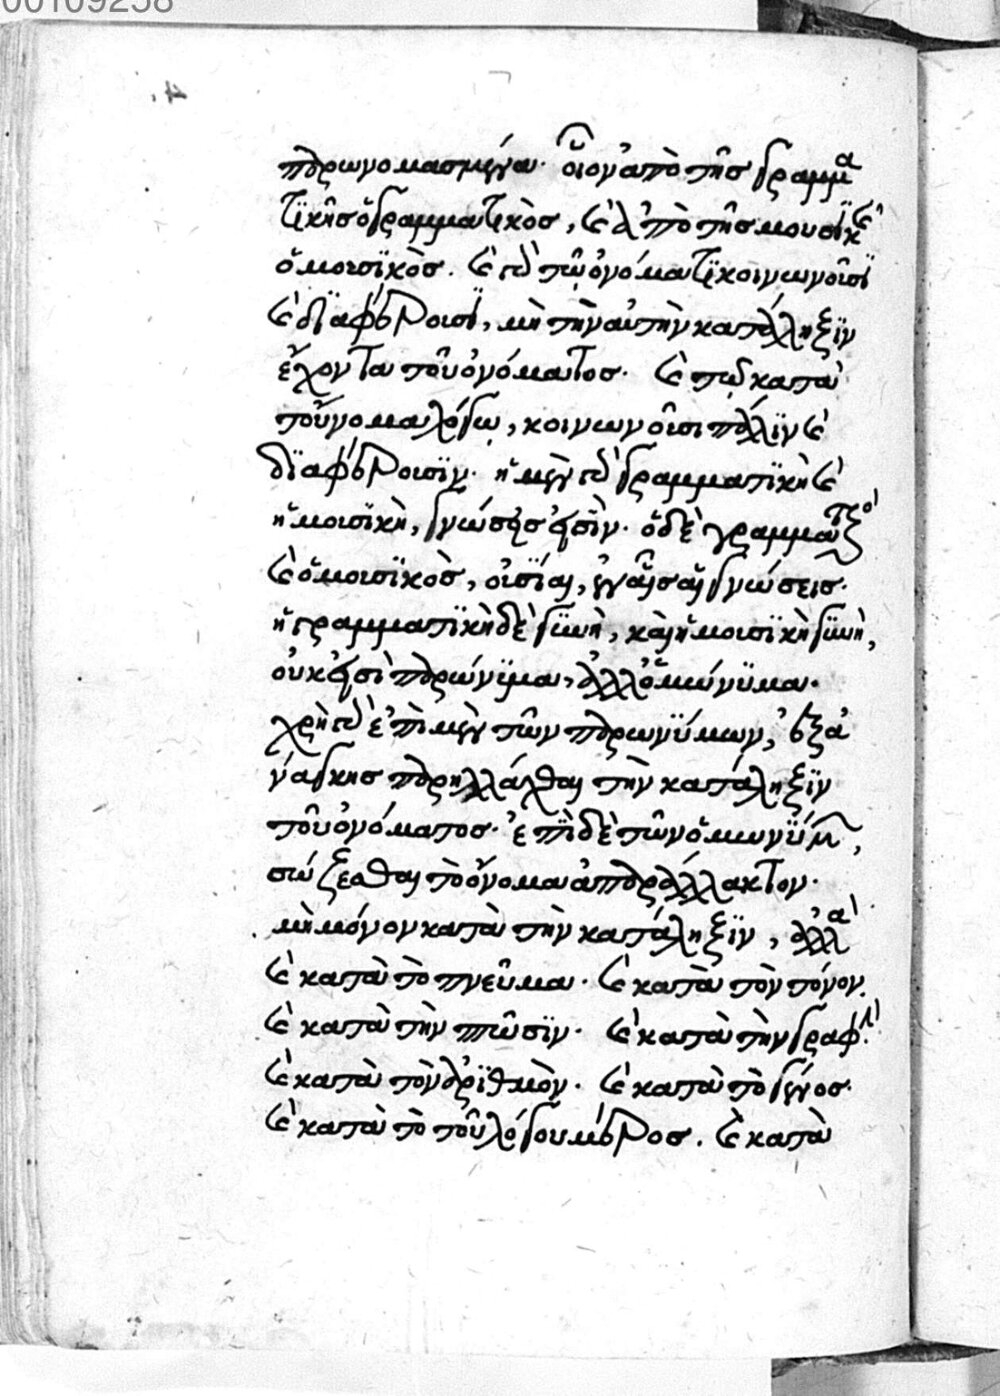 00109258
παρωνομασμένα· οἷον ἀπὸ τῆς γραμμα
τικῆς ὁ γραμματικὸς, καὶ ἀπὸ τῆς μουσικῆς
ὁ μουσϊκὸς. καὶ γὰρ τῷ ὀνόματϊ κοινωνοῦσϊ
καὶ δϊαφέρουσϊ, μὴ τὴν αὐτὴν κατάληξϊν
ἔχοντα τοῦ ὀνόματος· καὶ τῷ κατὰ
τοὔνομα λόγῳ, κοινωνοῦσι πάλϊν καὶ
δϊαφέρουσϊν· ἡ μὲν γὰρ γραμματϊκὴ καὶ
ἡ μουσϊκὴ, γνώσεις εἰσὶν· ὁ δὲ γραμματικὸς
καὶ ὁ μουσϊκὸς, οὐσΐαι, ἐν αἷς αἱ γνώσεις·
ἡ γραμματϊκὴ δὲ γϋνὴ, καὶ ἡ μουσϊκὴ γϋνὴ,
οὐκ εἰσὶ παρώνϋμα, ἀλλ' ὁμώνϋμα·
χρὴ γὰρ ἐπὶ μὲν τῶν παρωνϋμων, ἐξ ἀ
νάγκης παρηλλάχθαι τὴν κατάληξϊν
τοῦ ὀνόματος· ἐπῒ δὲ τῶν ὁμωνϋμων,
σώζεσθαι τὸ ὄνομα ἀπαράλλακτον·
μὴ μόνον κατὰ τὴν κατάληξϊν, ἀλλὰ
καὶ κατὰ τὸ πνεῦμα· καὶ κατὰ τὸν τόνον.
καὶ κατὰ τὴν πτῶσϊν· καὶ κατὰ τὴν γραφὴν·
καὶ κατὰ τὸν ἀρϊθμὸν· καὶ κατὰ τὸ γένος·
καὶ κατὰ τὸ τοῦ λόγου μέρος. καὶ κατὰ